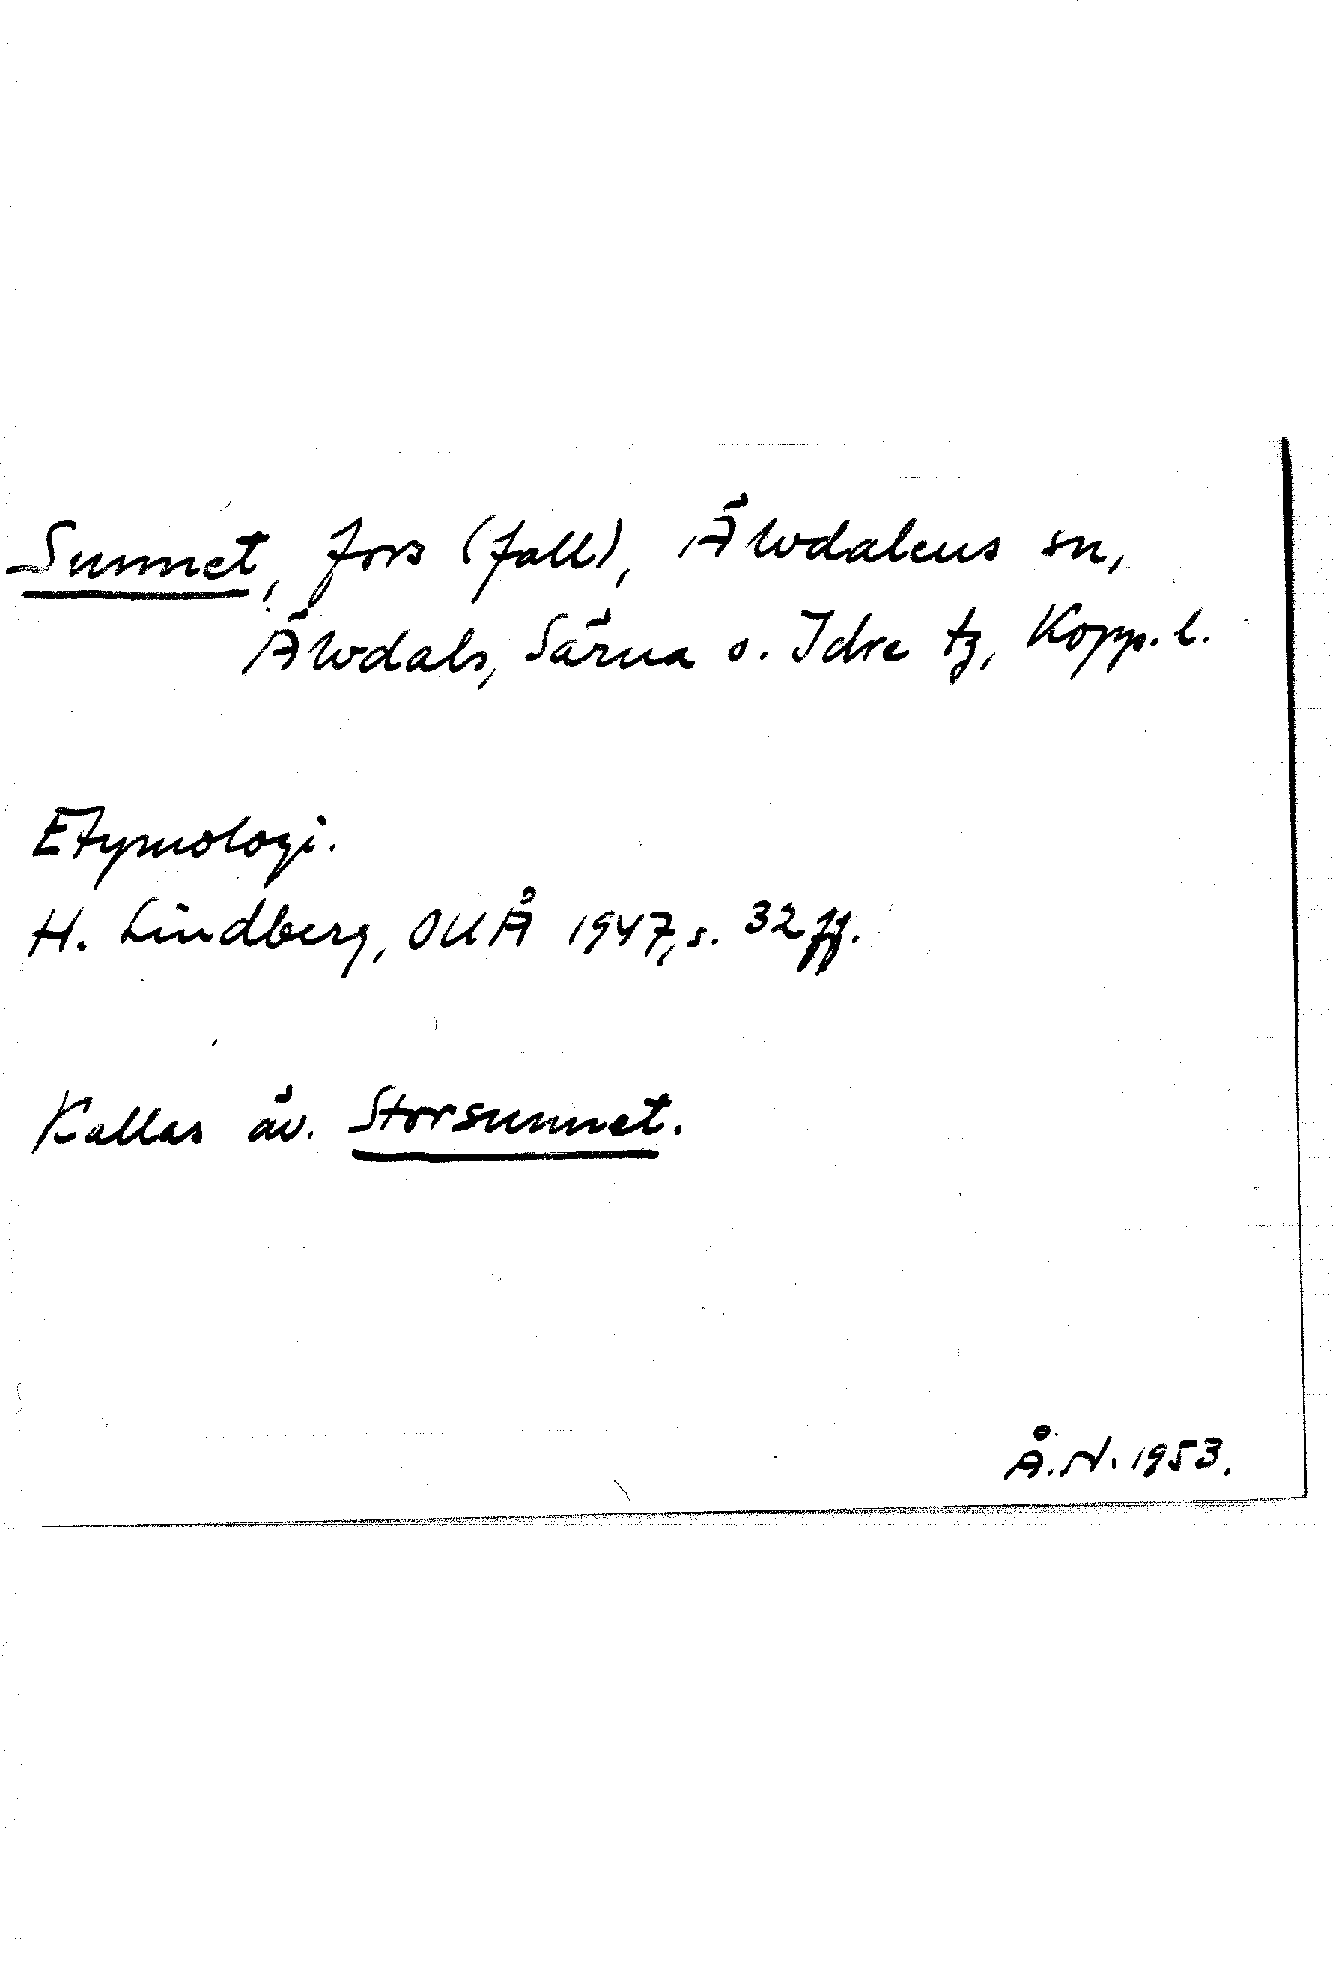 Sunnet, fors (fall), Älvdalens sn,
Älvdals, Särna o. Idre tg, Kopp. l.
Etymologi.
H. Lindberg, OUÅ 1947, s. 32 ff.
Kallas äv. Storsunnet.
Å.N. 1953.